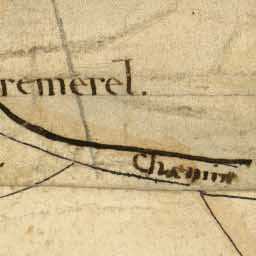 remerel.
Chemin